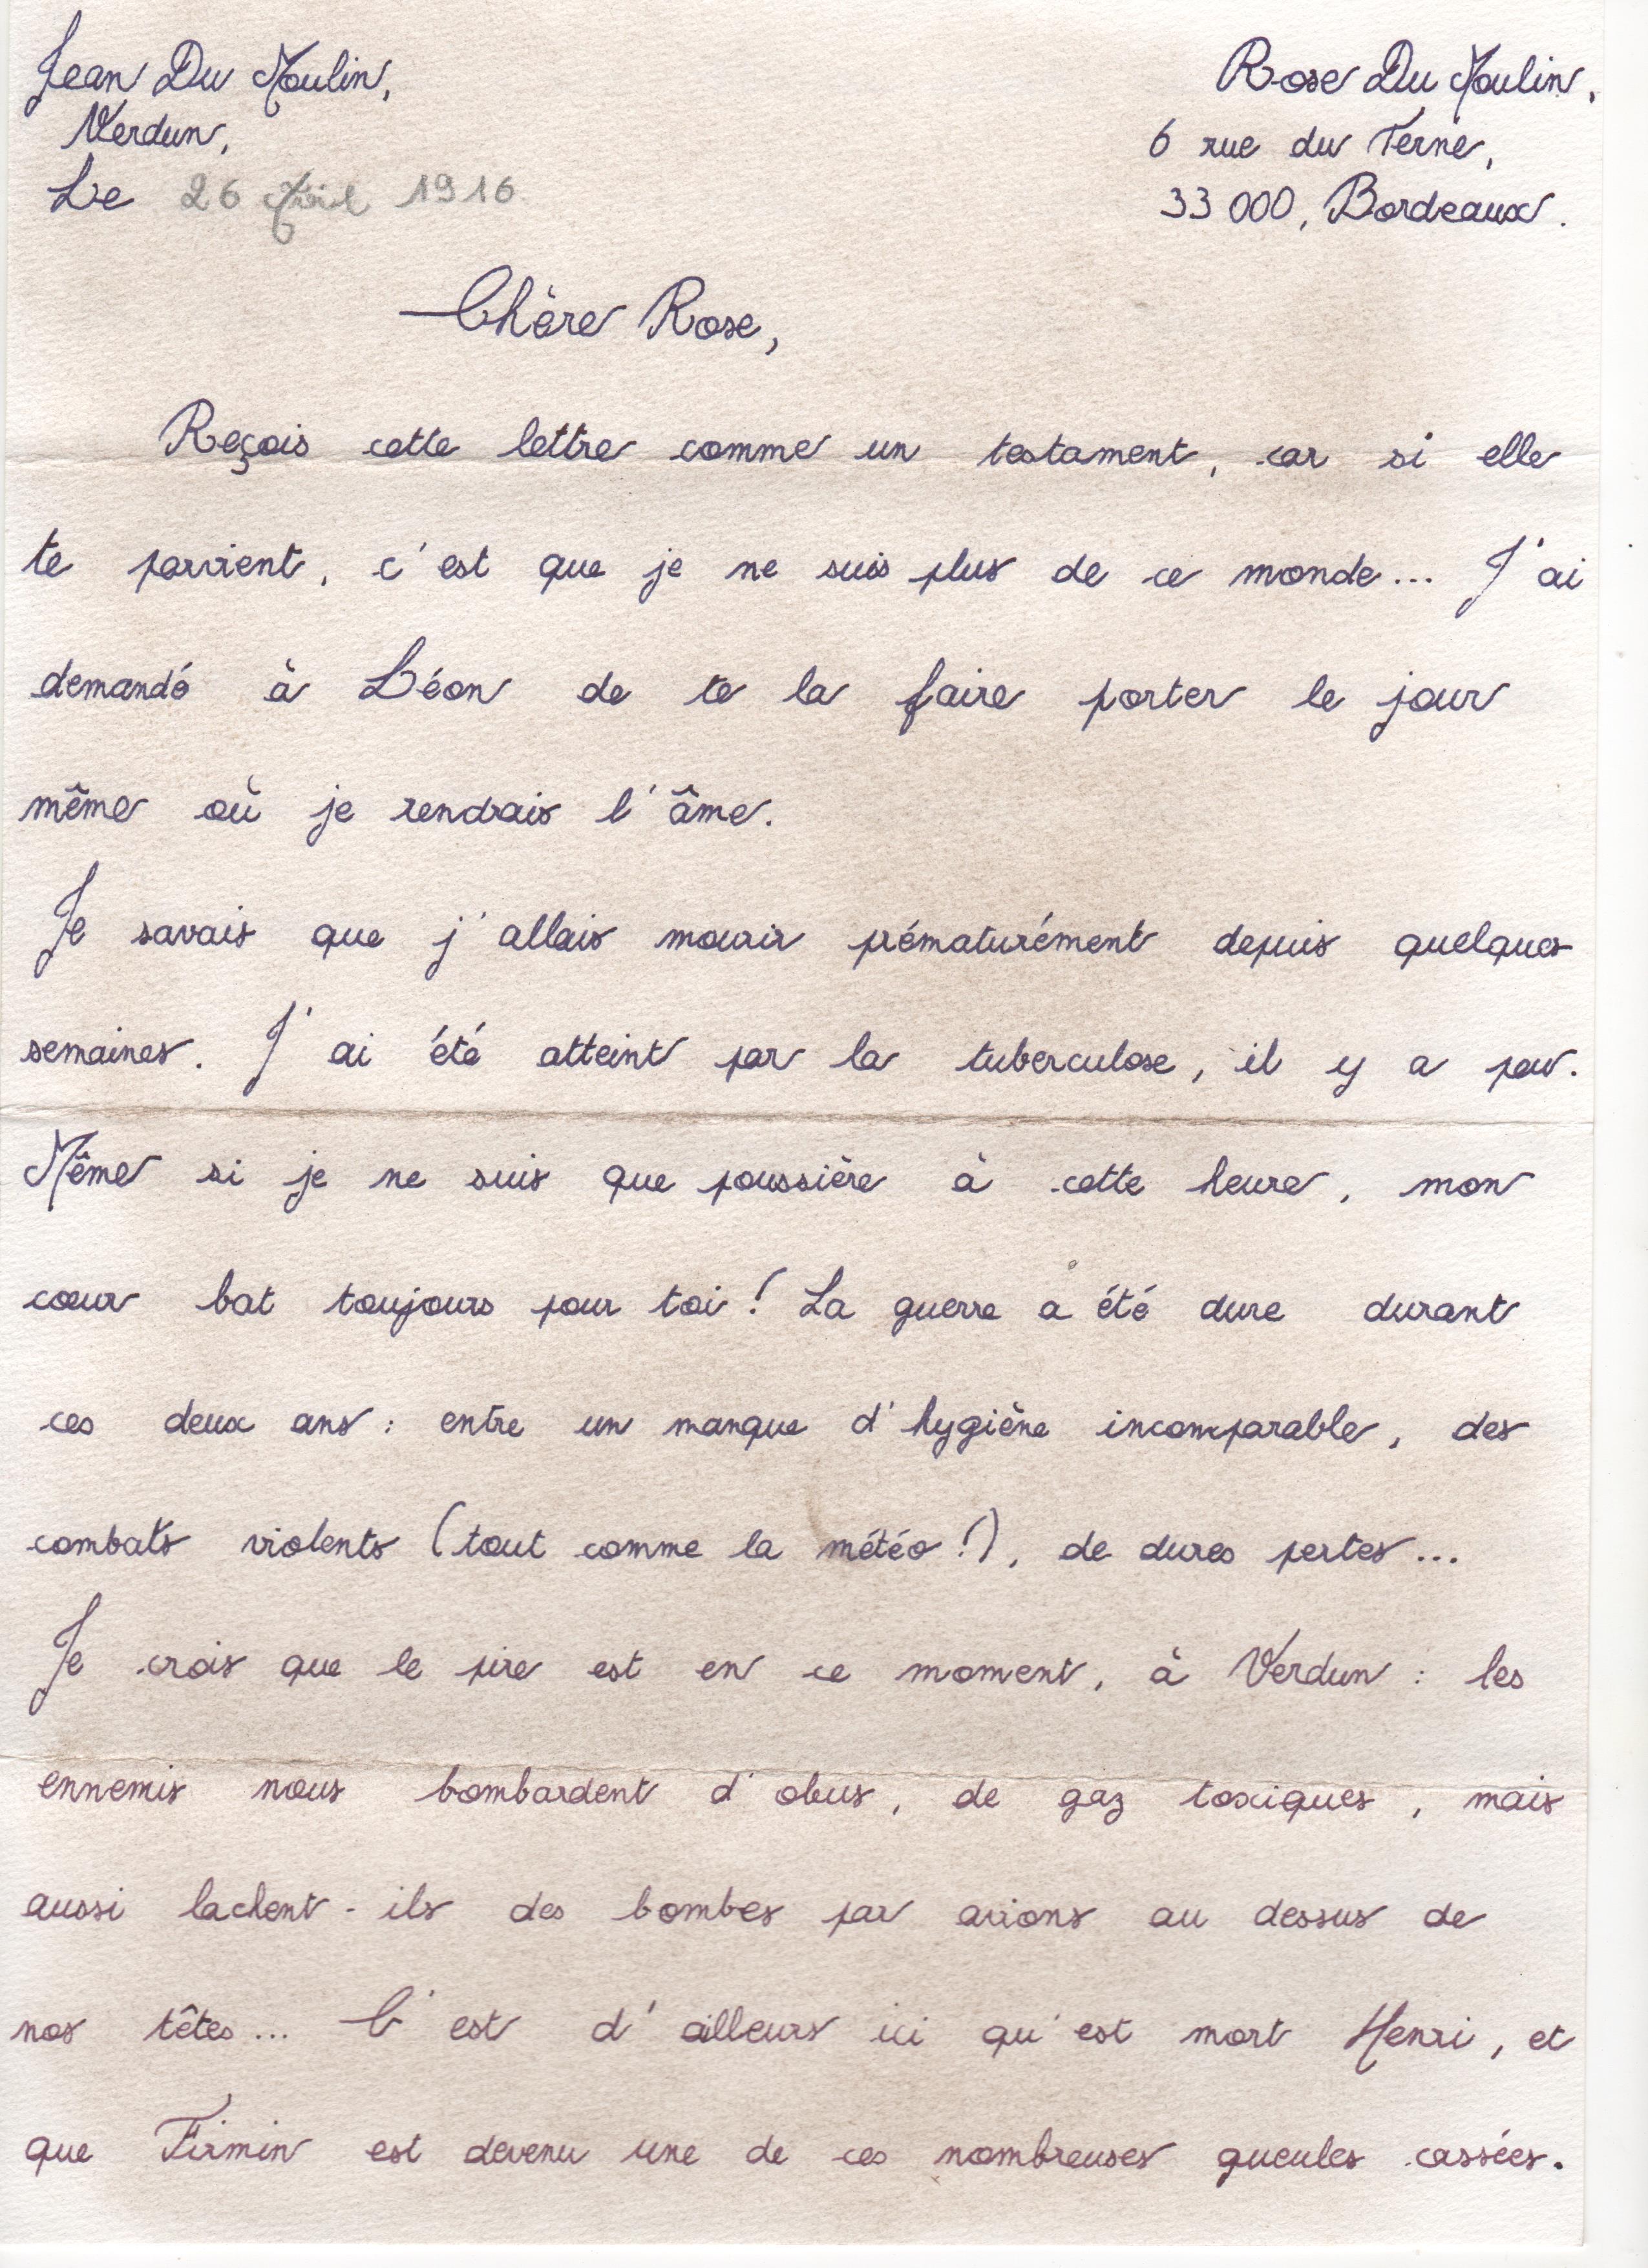 Jean Du Moulin,
Verdun,
Le 26 Avril 1916
Rose Du Moulin,
6 rue du Terne,
33 000, Bordeaux.
Chère Rose,
Reçois cette lettre comme un testament, car si elle
te parvient, c'est que je ne suis plus de ce monde... J'ai
demandé à Léon de te la faire porter le jour
même où je rendrais l'âme.
Je savais que j'allais mourir prématurément depuis quelques
semaines. J'ai été atteint par la tuberculose, il y a peu.
Même si je ne suis que poussière à cette heure, mon
cœur bat toujours pour toi ! La guerre a été dure durant
ces deux ans : entre un manque d'hygiène incomparable, des
combats violents (tout comme la météo !), de dures pertes...
Je crois que le pire est en ce moment, à Verdun : les
ennemis nous bombardent d'obus, de gaz toxiques, mais
aussi lachent-ils des bombes par avions au dessus de
nos têtes... C'est d'ailleurs ici qu'est mort Henri, et
que Firmin est devenu une de ces nombreuses gueules cassées.